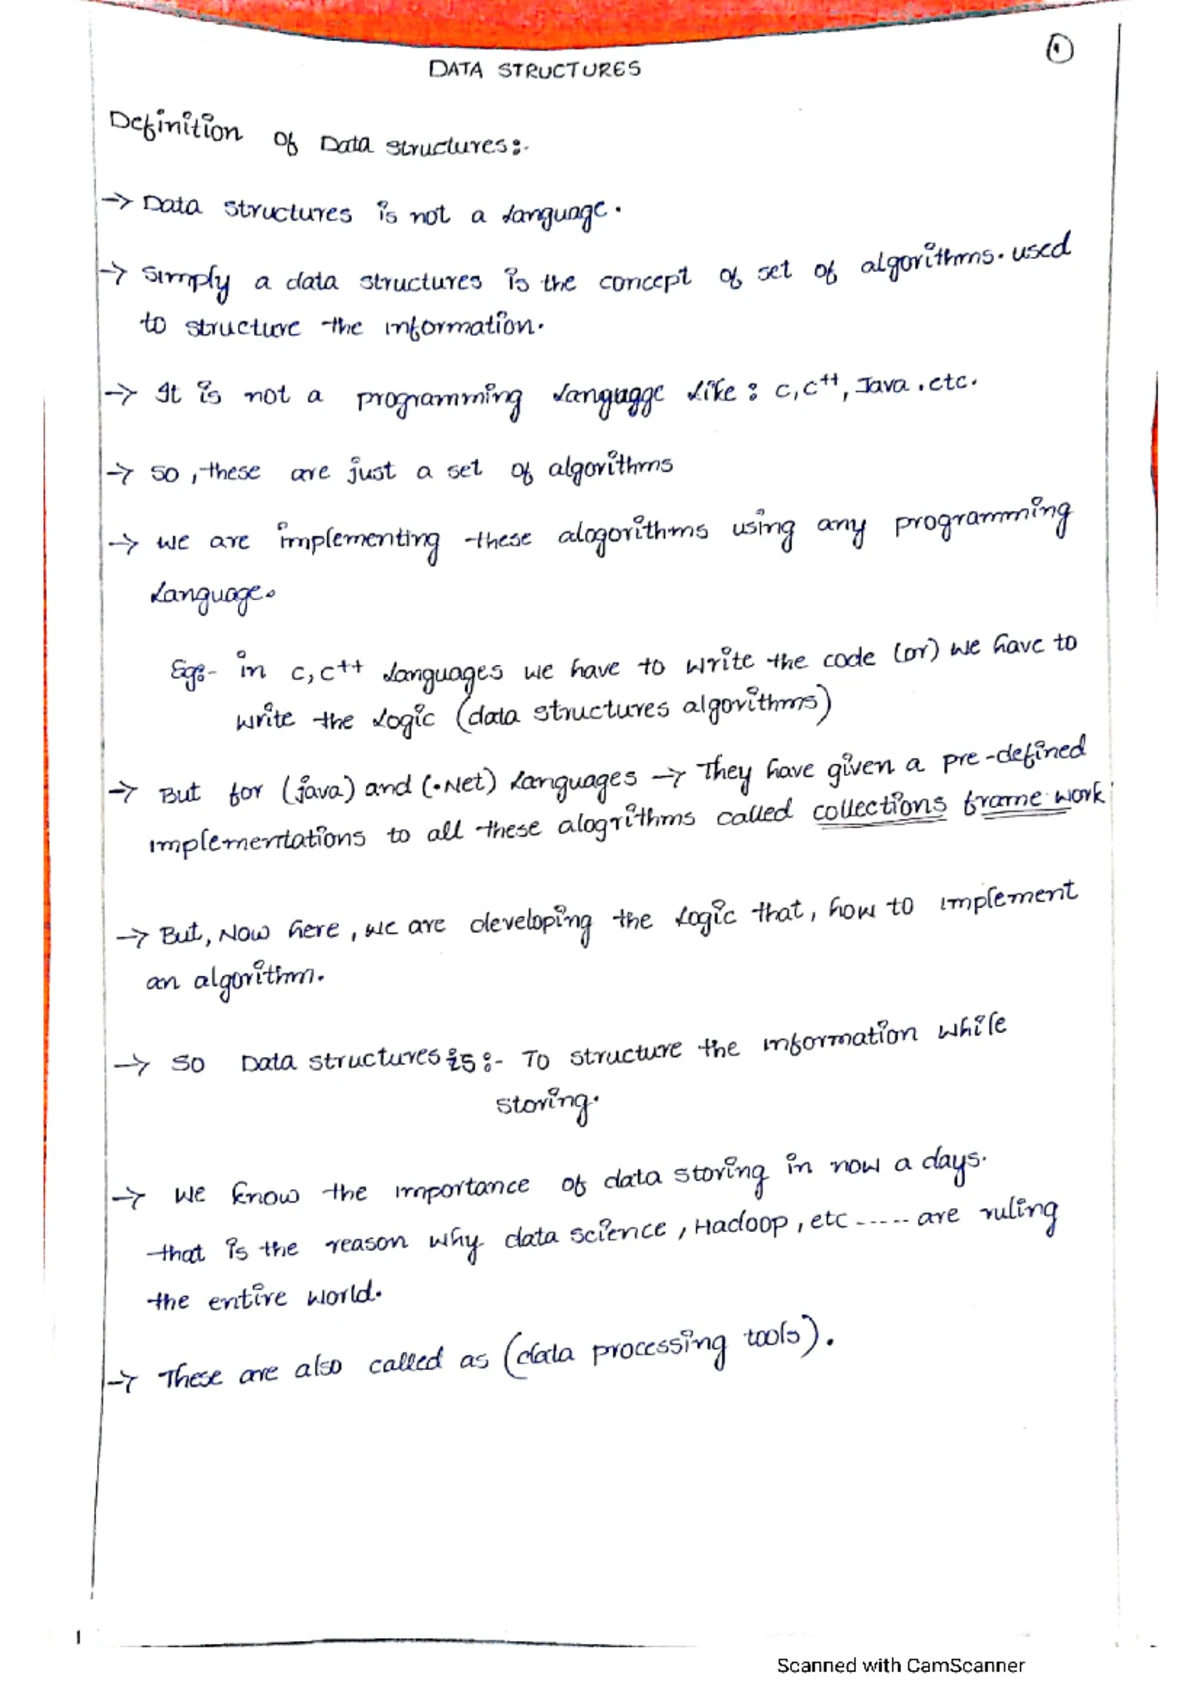 ①
DATA STRUCTURES
Definition of Data structures:-
→ Data structures is not a language.
→ Simply a data structures is the concept of set of algorithms. used
to structure the information.
→ It is not a programming langugge like : C, C++, Java . etc.
→ so , these are just a set of algorithms
→ we are implementing these alogorithms using any programming
language.
Eg:- in C, C++ languages we have to write the code (or) we have to
write the logic (data structures algorithms)
→ But for (java) and (.Net) languages → They have given a pre-defined
implementations to all these alogrithms called collections frame work
→ But, Now here, we are developing the logic that, how to implement
an algorithm.
→ So Data structures is :- To structure the information while
storing.
→ We know the importance of data storing in now a days.
that is the reason why data science, Hadoop, etc ----- are ruling
the entire world.
→ These are also called as (data processing tools).
1
Scanned with CamScanner